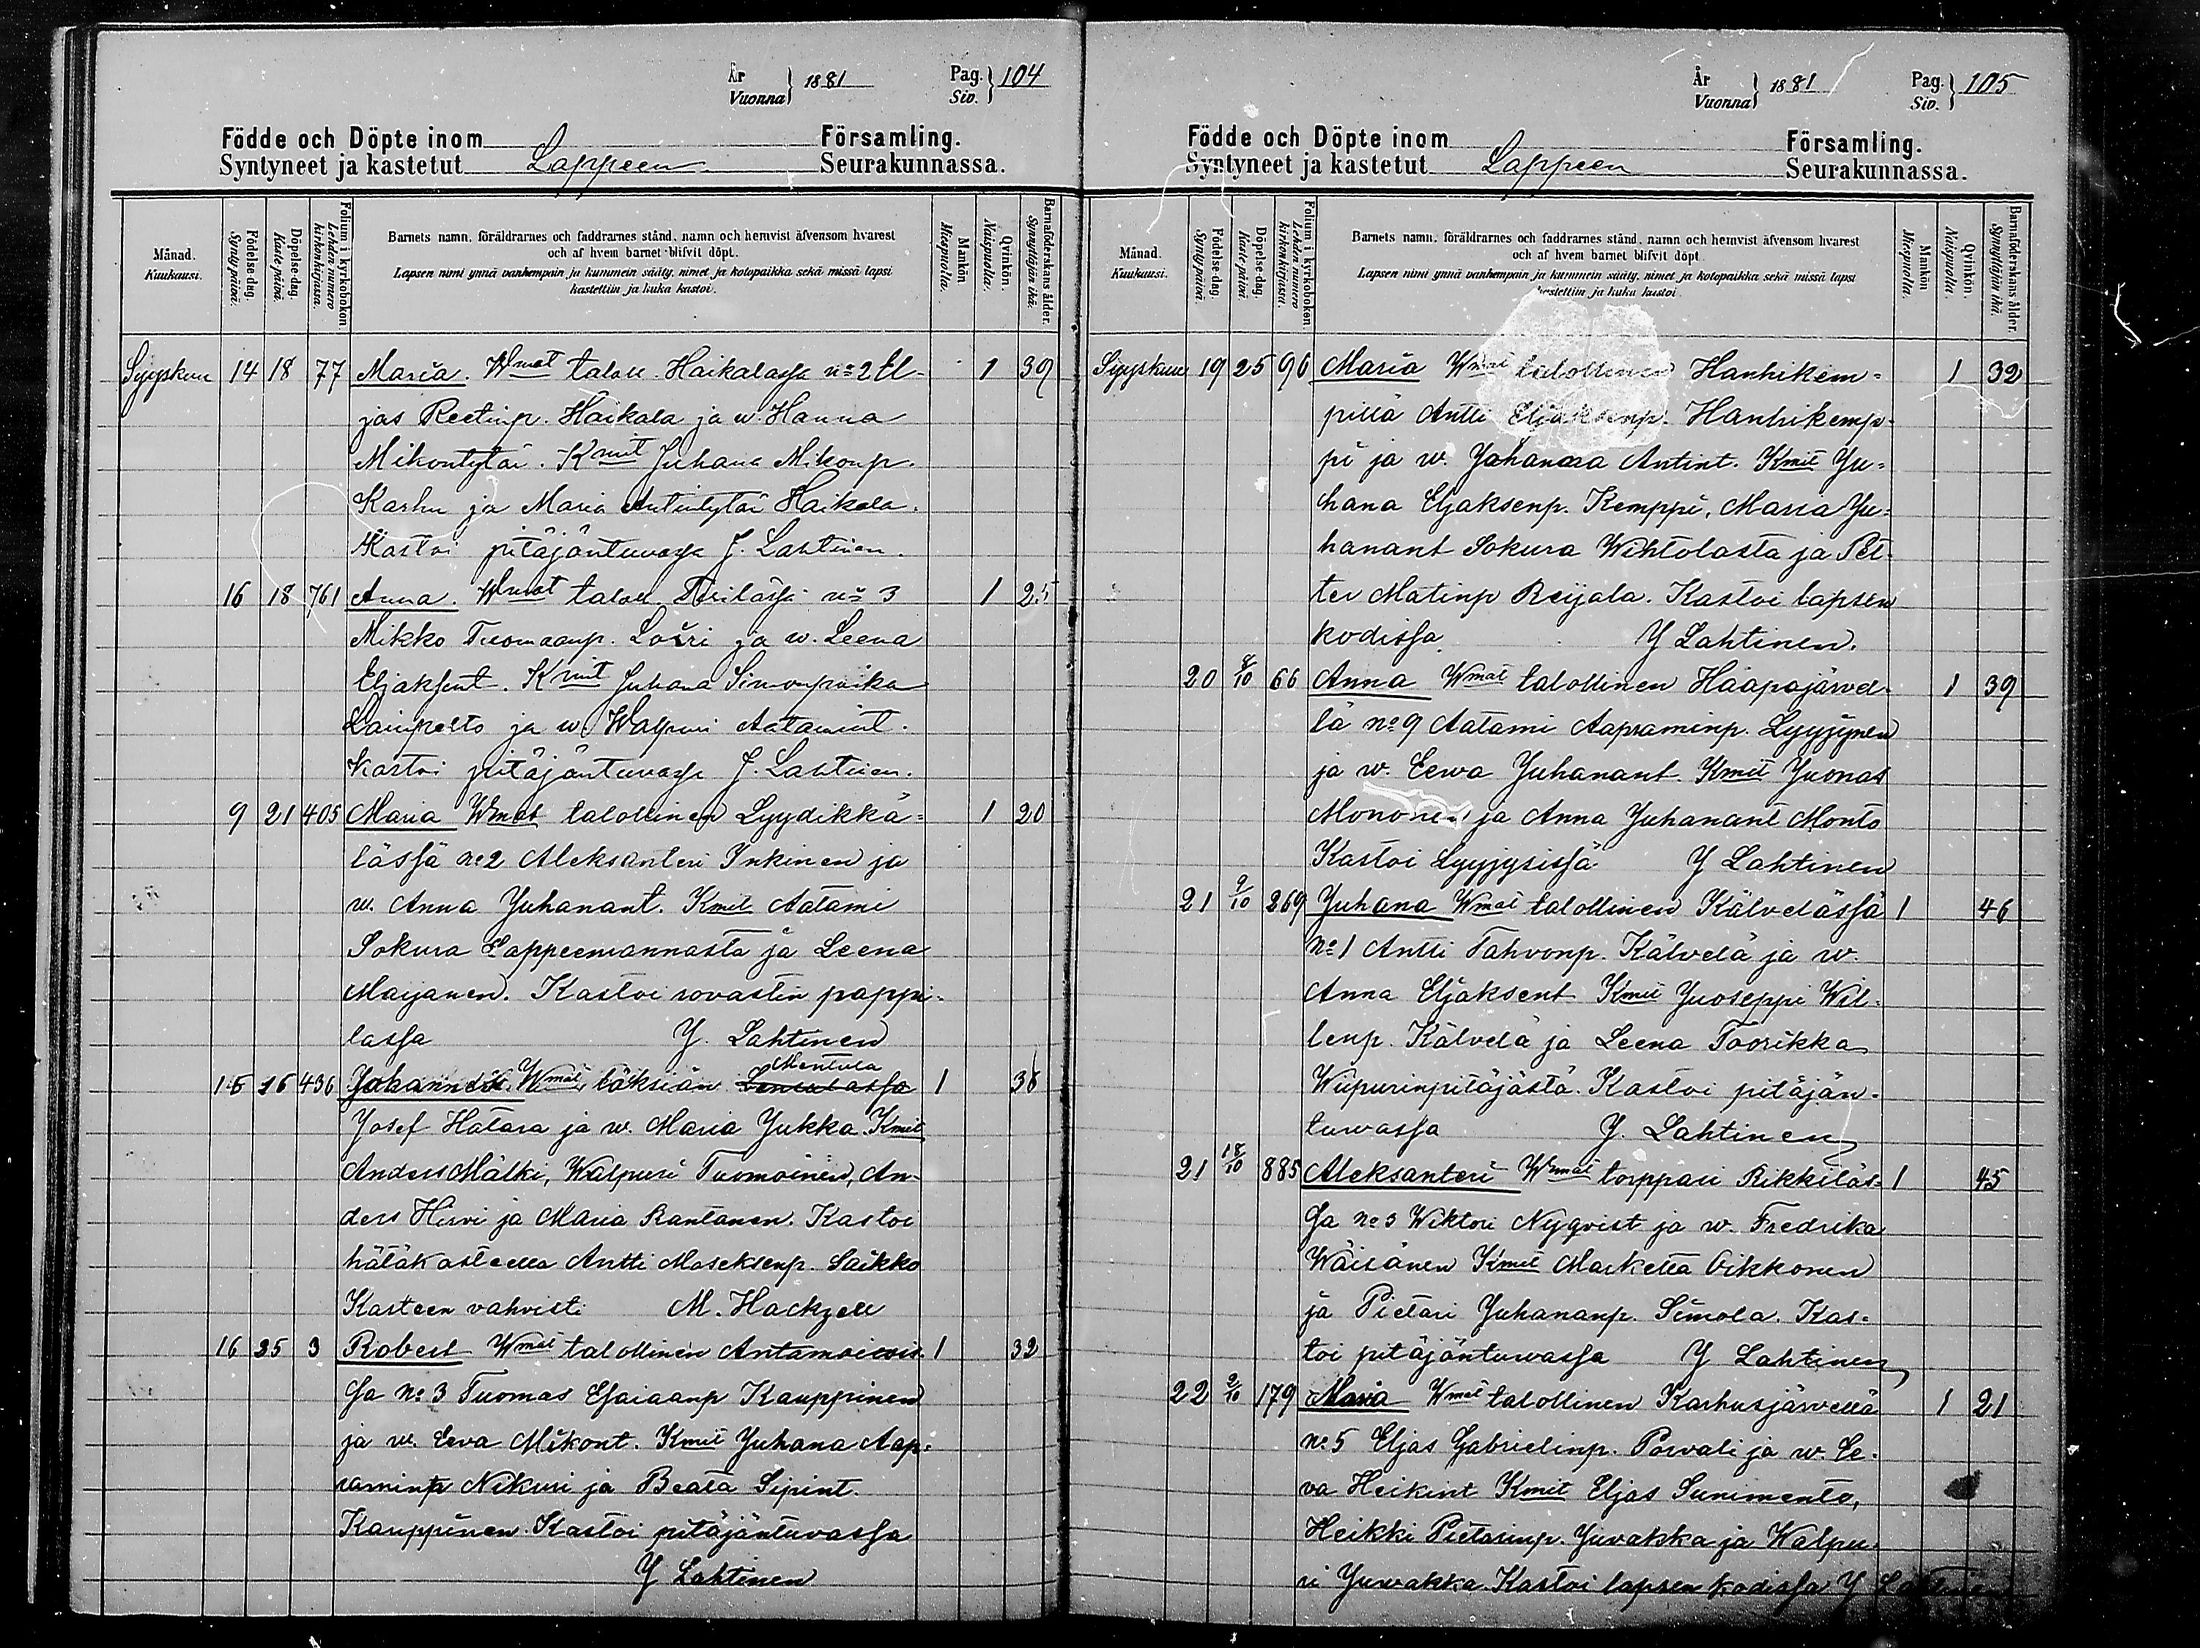 År
Vuonna } 1881 Pag.
Siv. } 104
Födde och Döpte inom Församling.
Syntyneet ja kastetut Lappeen Seurakunnassa.
Månad.
Kuukausi.
Födelse-dag.
Syntypäivä.
Döpelse-dag.
Kastepäivä.
Folium i kyrkoboken.
Lehden numero
kirkonkirjassa.
Barnets namn, föräldrarnes och faddrarnes stånd, namn och hemvist äfvensom hvarest
och af hvem barnet blifvit döpt.
Lapsen nimi ynnä vanhempain ja kummein sääty, nimet ja kotopaikka sekä missä lapsi
kastettiin ja kuka kastoi.
Mankön
Miespuolia.
Qvinkön.
Naispuolia.
Barnaföderskans ålder.
Synnyttäjän ikä.
Syyskuu 14 18 77 Maria. Wmat taloll. Haikalassa no 2 El- 1 39
jas Reetinp. Haikala ja w. Hanna
Mikontytär. Kmit Juhana Mikonp.
Karhu ja Maria Antintytär Haikala.
Kastoi pitäjäntuvassa J. Lahtinen.
16 18 761 Anna. Wmat taloll no 3 1 25
Mikko Tuomaanp. ja w. Leena
Eljaksent. Kmit Juhana Simonpoika
ja w Walpuri Aatamint.
Kastoi pitäjäntuvassa J. Lahtinen.
9 21 405 Maria Wmat talollinen Lyydikkä= 1 20
lässä no 2 Aleksanteri Inkinen ja
w. Anna Yuhanant. Kmit Aatami
Sokura Lappeenrannasta ja Leena
Maijanen. Kastoi rovastin pappi-
lassa Y. Lahtinen
Mentula
15 16 436 Johannes. Wmat läksiän 1 36
Josef Hatara ja w. Maria Yukka Kmit
Anders Mälki, Walpuri Tuomoinen, An-
ders Hirvi ja Maria Rantanen. Kastoi
hätäkasteella Antti Moseksenp. Saikko
Kasteen vahvisti M. Hackzell
16 25 3 Robert Wmat talollinen 1 32
sa No 3 Tuomas Esaiaanp Kauppinen
ja w. Eeva Mikont. Kmit Yuhana Aap-
raminp Nikuri ja Beata Sipint.
Kauppinen Kastoi pitäjäntuvassa
Y Lahtinen
År
Vuonna } 1881 Pag.
Siv. } 105
Födde och Döpte inom Församling.
Syntyneet ja kastetut Lappeen Seurakunnassa.
Månad.
Kuukausi.
Födelse-dag.
Syntypäivä.
Döpelse-dag.
Kastepäivä.
Folium i kyrkoboken.
Lehden numero
kirkonkirjassa.
Barnets namn, föräldrarnes och faddrarnes stånd, namn och hemvist äfvensom hvarest
och af hvem barnet blifvit döpt.
Lapsen nimi ynnä vanhempain ja kummein sääty, nimet ja kotopaikka sekä missä lapsi
kastettiin ja kuka kastoi.
Mankön
Miespuolia.
Qvinkön.
Naispuolia.
Barnaföderskans ålder.
Synnyttäjän ikä.
Syyskuu 19 25 96 Maria Wmat talollinen Hanhikem= 1 32
pillä Antti Eljaksenp. Hanhikemp-
pi ja w. Yohanna Antint. Kmit Yu=
hana Eljaksenp. Kemppi, Maria Yu=
hanant Sokura Wihtolasta ja Pet-
ter Matinp Reijala. Kastoi lapsen
kodissa. Y Lahtinen.
20 8/10 66 Anna Wmat talollinen Haapajärvel- 1 39
lä no 9 Aatami Aapraminp. Lyyjynen
ja w. Eewa Yuhanant. Kmit Yuonas
Mononen ja Anna Yuhanant Monto
Kastoi Lyyjysissä Y Lahtinen
21 9/10 269 Yuhana Wmat talollinen Kälvelässä 1 46
No 1 Antti Tahvonp. Kälvelä ja w.
Anna Eljaksent Kmit Yuoseppi Wil-
lenp. Kälvelä ja Leena Toorikka
Wiipurinpitäjästä. Kastoi pitäjän-
tuwassa Y. Lahtinen
21 18/10 885 Aleksanteri Wmat torppari Rikkiläs= 1 45
sa no 3 Wiktori Nyqvist ja w. Fredrika
Wäisänen Kmit Marketta Oikkonen
ja Pietari Yuhananp. Simola. Kas-
toi pitäjäntuwassa Y Lahtinen
22 2/10 179 Maria Wmat talollinen Karhusjärvellä 1 21
no 5 Eljas Gabrielinp. Porvali ja w. Ee-
va Heikint Kmit Eljas Sunimento,
Heikki Pietarinp. Yuvakka ja Walpu-
ri Yuvakka Kastoi lapsen kodissa Y Lahtinen